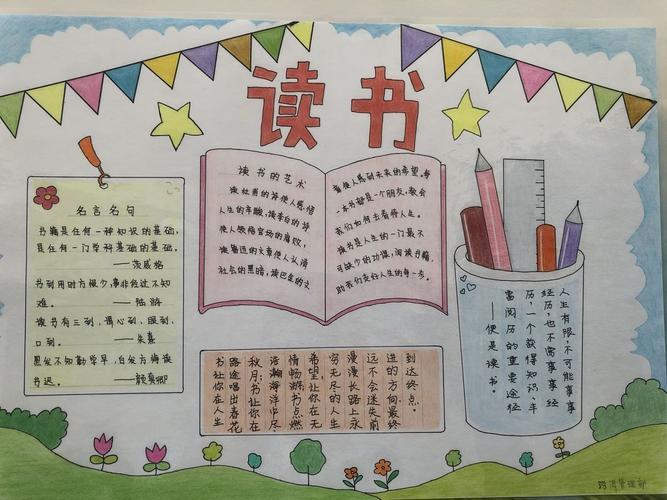 读书
名言名句
书籍是任何一种知识的基础,
是任何一门学科基础的基础。
——茨威格
书到用时方恨少,事非经过不知
难。 ——陆游
读书有三到,谓心到、眼到、
口到。 ——朱熹
黑发不知勤学早,白发方悔读
书迟。 ——颜真卿
读书的艺术
读杜甫的诗使人感悟
人生的辛酸,读李白的诗
使人领悟官场的腐败,
读鲁迅的文章使人认清
社会的黑暗,读巴金的文
章使人感到未来的希望。每
一本书都是一个朋友,教会
我们如何去看待人生。
读书是人生的一门最不
可缺少的功课,阅读书籍,
助我们走好人生的每一步。
书让你在人生
路途唱出春花
秋月;书让你在
浩瀚海洋中尽
情畅游;书点燃
希望让你在无
穷无尽的人生
漫漫长路上永
远不会迷失前
进的方向最终
到达终点。
人生有限,不可能事事
经历,也不需事事经
历,一个获得知识、丰
富阅历的重要途径
——便是读书。